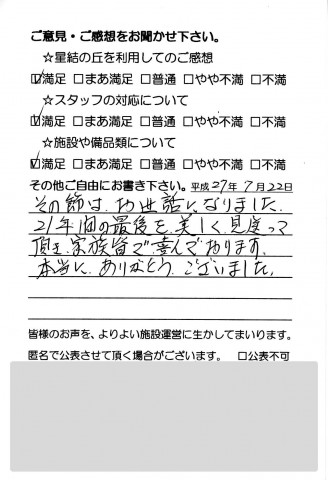 ご意見・ご感想をお聞かせ下さい。
☆星結の丘を利用してのご感想
☑満足 □まあ満足 □普通 □やや不満 □不満
☆スタッフの対応について
☑満足 □まあ満足 □普通 □やや不満 □不満
☆施設や備品類について
☑満足 □まあ満足 □普通 □やや不満 □不満
その他ご自由にお書き下さい。平成27年7月22日
その節は、お世話になりました。
21年間の最後を、美しく見度って
頂き、家族皆で喜んでおります。
本当に、ありがとうございました。
皆様のお声を、よりよい施設運営に生かしてまいります。
匿名で公表させて頂く場合がございます。 □公表不可